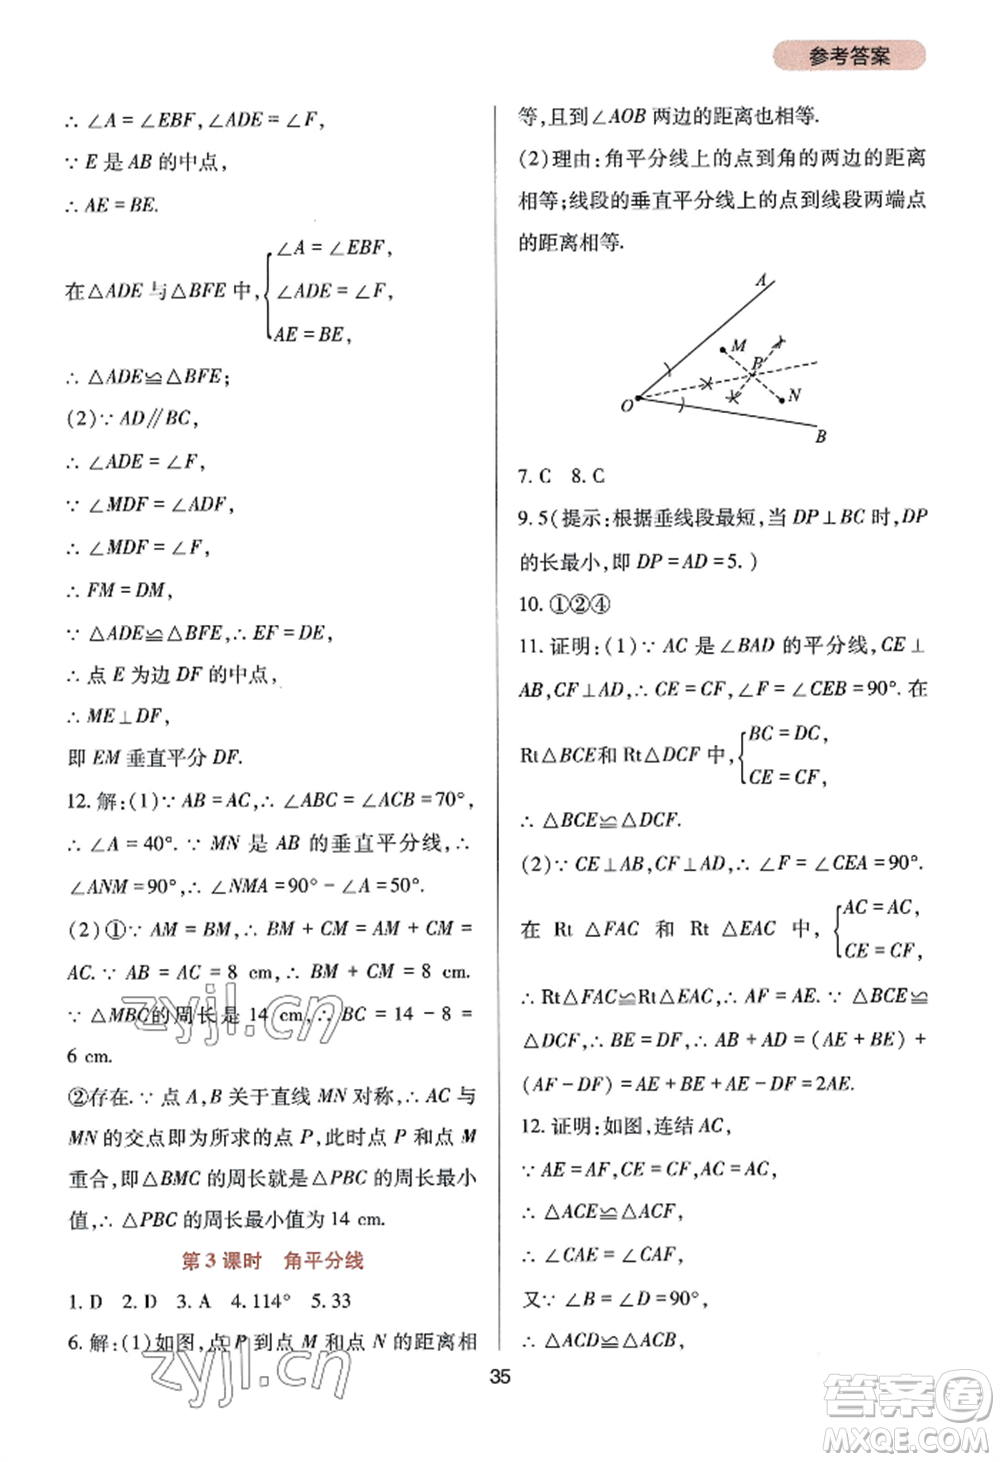 参考答案
∴ ∠A = ∠EBF, ∠ADE = ∠F,
∵ E 是 AB 的中点,
∴ AE = BE.
∠A = ∠EBF,
在△ADE 与△BFE 中, ∠ADE = ∠F,
AE = BE,
∴ △ADE≌△BFE;
(2)∵ AD∥BC,
∴ ∠ADE = ∠F,
∵ ∠MDF = ∠ADF,
∴ ∠MDF = ∠F,
∴ FM = DM,
∵ △ADE≌△BFE, ∴ EF = DE,
∴ 点 E 为边 DF 的中点,
∴ ME⊥DF,
即 EM 垂直平分 DF.
12. 解:(1)∵ AB = AC, ∴ ∠ABC = ∠ACB = 70°,
∴ ∠A = 40°. ∵ MN 是 AB 的垂直平分线, ∴
∠ANM = 90°, ∴ ∠NMA = 90° - ∠A = 50°.
(2)①∵ AM = BM, ∴ BM + CM = AM + CM =
AC. ∵ AB = AC = 8 cm, ∴ BM + CM = 8 cm.
∵ △MBC的周长是 14 cm, ∴ BC = 14 - 8 =
6 cm.
②存在. ∵ 点 A, B 关于直线 MN 对称, ∴ AC 与
MN 的交点即为所求的点 P, 此时点 P 和点 M
重合, 即△BMC 的周长就是△PBC 的周长最小
值, ∴ △PBC 的周长最小值为 14 cm.
第 3 课时 角平分线
1. D 2. D 3. A 4. 114° 5. 33
6. 解:(1)如图, 点 P 到点 M 和点 N 的距离相
等, 且到∠AOB 两边的距离也相等.
(2)理由: 角平分线上的点到角的两边的距离
相等; 线段的垂直平分线上的点到线段两端点
的距离相等.
A
M
P
N
O
B
7. C 8. C
9. 5(提示: 根据垂线段最短, 当 DP⊥BC 时, DP
的长最小, 即 DP = AD = 5. )
10. ①②④
11. 证明:(1)∵ AC 是∠BAD 的平分线, CE⊥
AB, CF⊥AD, ∴ CE = CF, ∠F = ∠CEB = 90°. 在
Rt△BCE和 Rt△DCF 中, BC = DC,
CE = CF,
∴ △BCE≌△DCF.
(2)∵ CE⊥AB, CF⊥AD, ∴ ∠F = ∠CEA = 90°.
在 Rt △FAC 和 Rt △EAC 中, AC = AC,
CE = CF,
∴ Rt△FAC≌Rt△EAC, ∴ AF = AE. ∵ △BCE≌
△DCF, ∴ BE = DF, ∴ AB + AD = (AE + BE) +
(AF - DF) = AE + BE + AE - DF = 2AE.
12. 证明: 如图, 连结 AC,
∵ AE = AF, CE = CF, AC = AC,
∴ △ACE≌△ACF,
∴ ∠CAE = ∠CAF,
又∵ ∠B = ∠D = 90°,
∴ △ACD≌△ACB,
35
zyjl.cn
zyjl.cn
答案卷
MXQE.COM